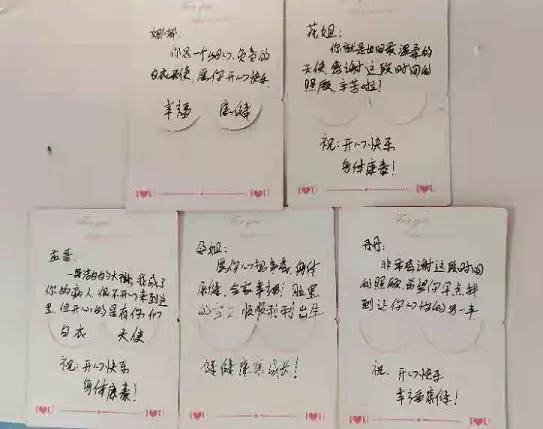 For you
娜娜:
你是一个细心,负责的
白衣天使,愿你开心快乐
幸福 康健
For you
花姐:
你就是世间最温柔的
天使,感谢这段时间的
照顾,辛苦啦!
祝:开心快乐
身体康泰!
For you
我成了
你的病人,很不开心来到这
里,但开心的是有你们
白衣 天使
祝:开心快乐
身体康泰!
For you
姐:
愿你心想事成,身体
康健,合家幸福!肚里
的宝宝顺顺利利出生
健健康康成长!
For you
丹丹:
非常感谢这段时间
的照顾,希望你早点找
到让你心怡的另一半
祝:开心快乐
幸福康健!